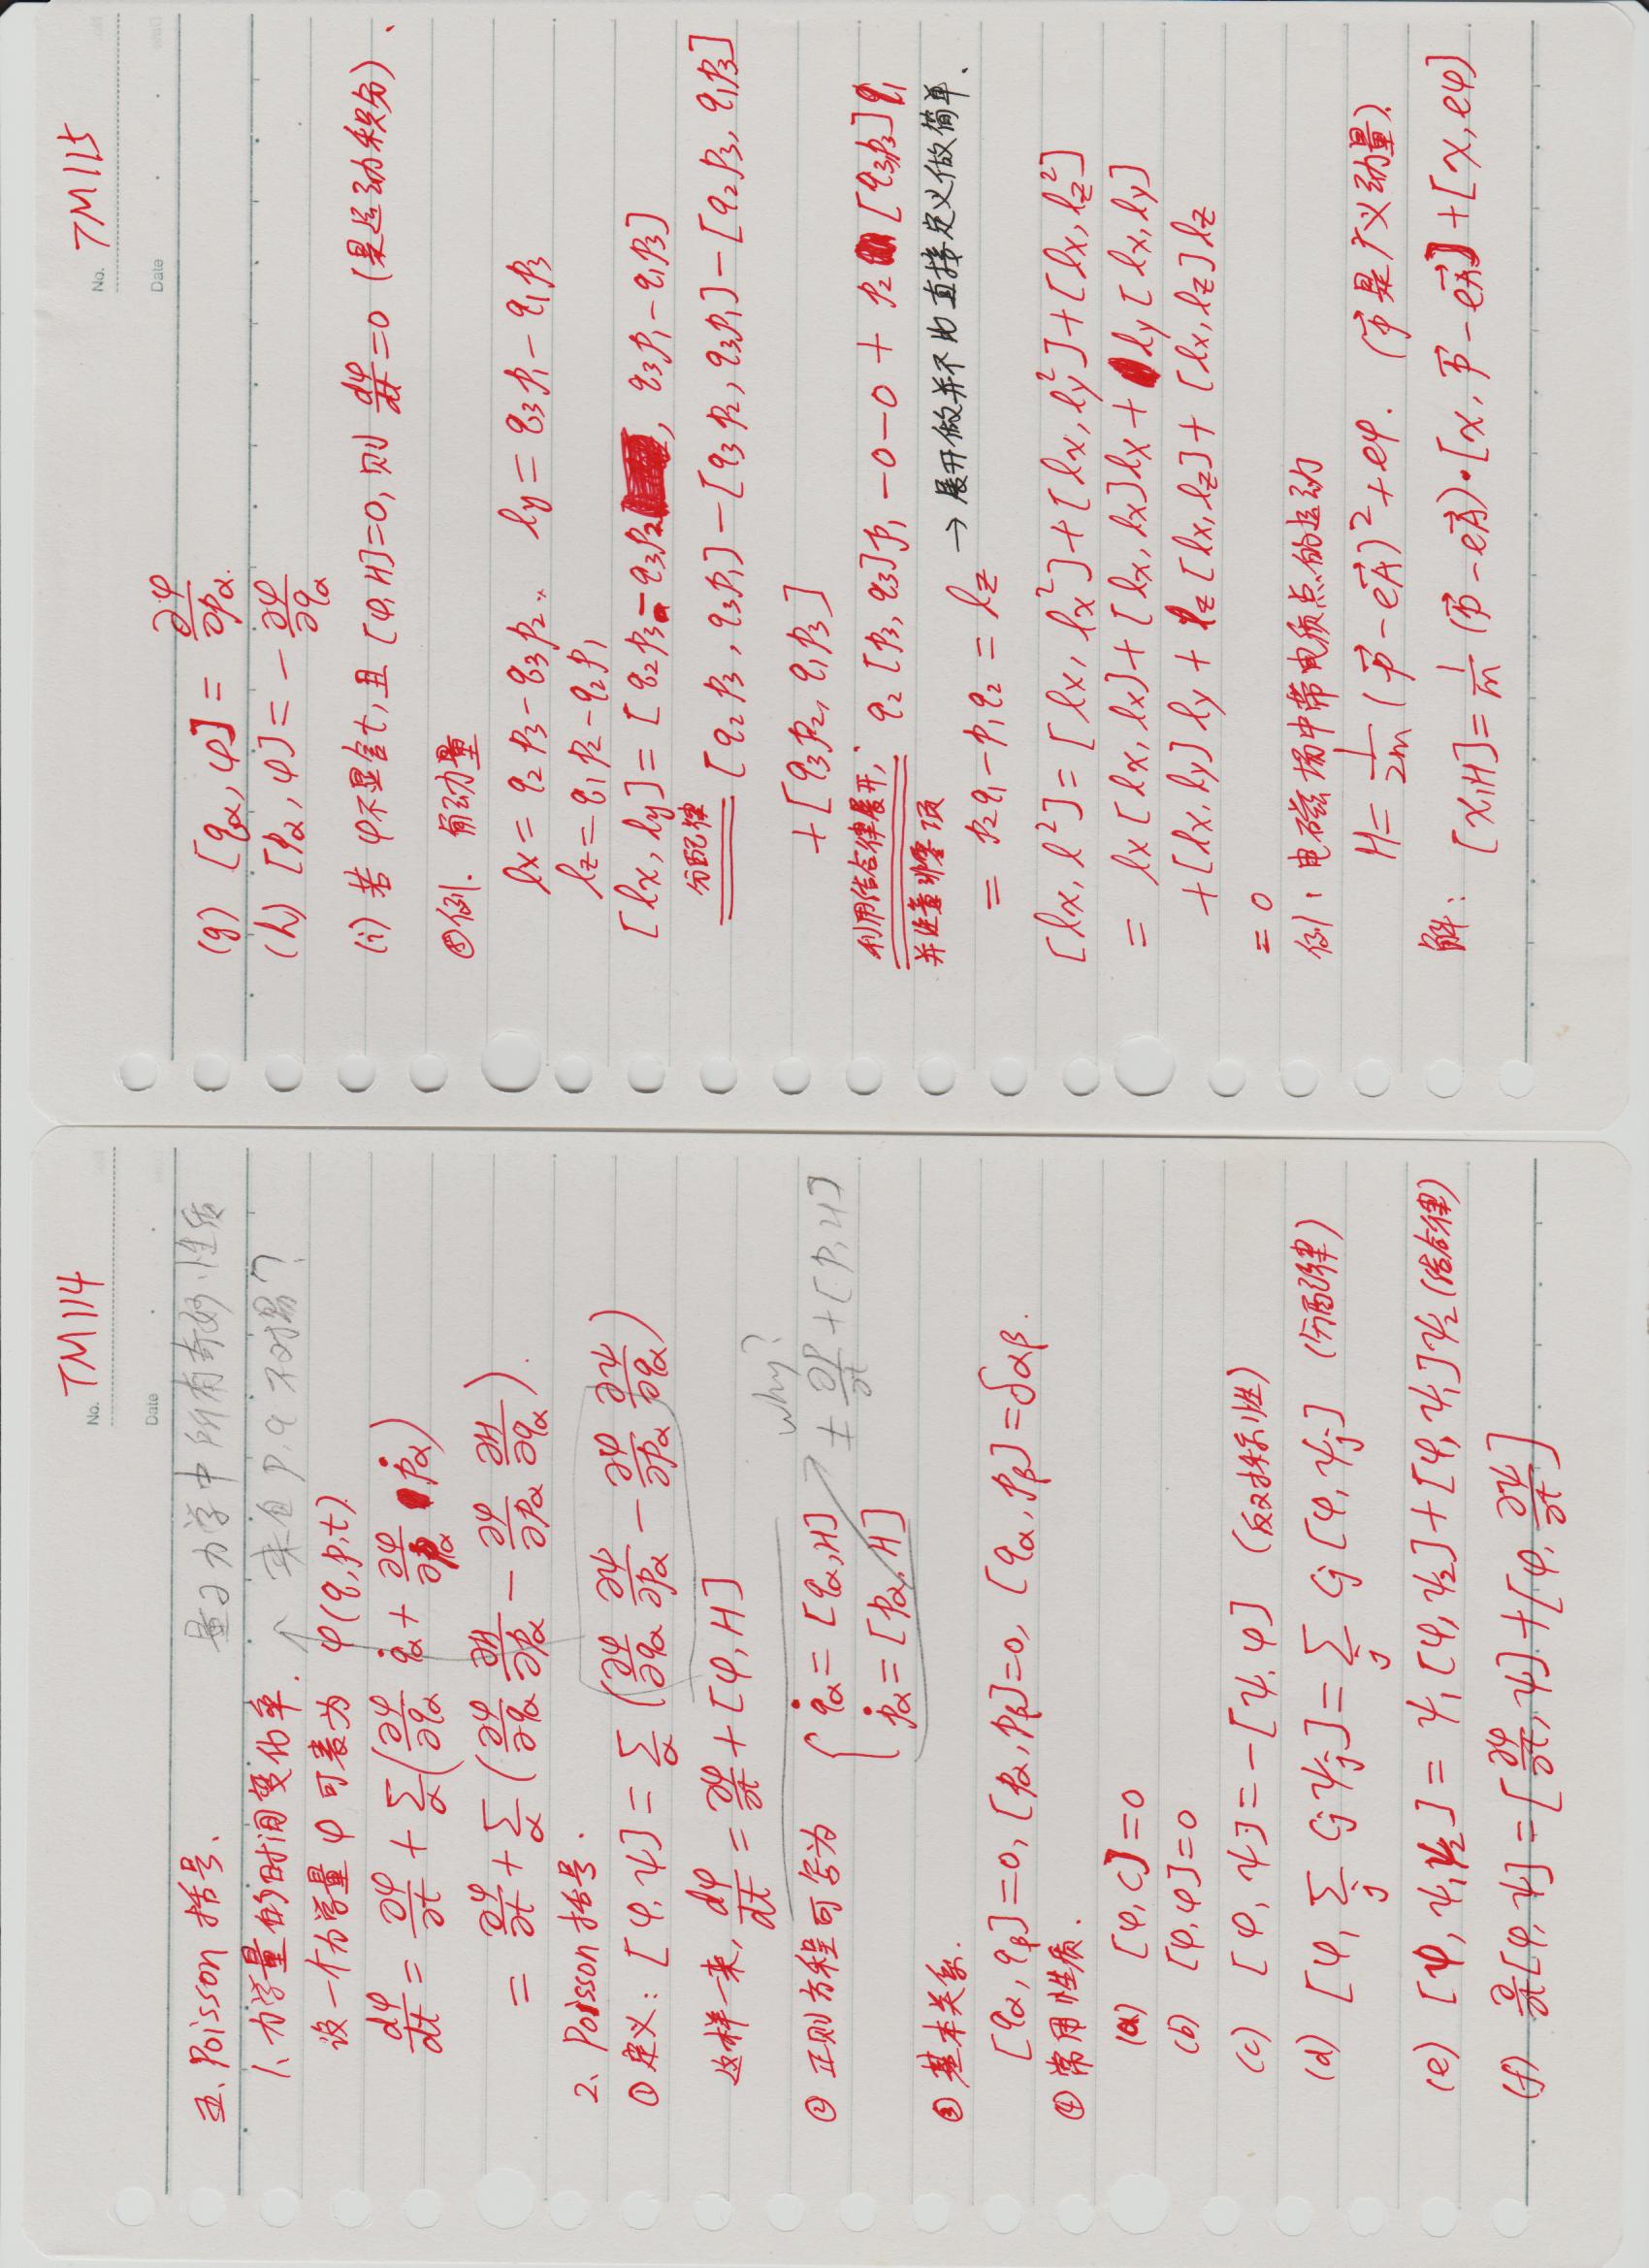 No. TM114
Date
五、Poisson 括号.
量子力学中所有奇妙性质
来自 p, q 不对易?
1、力学量的时间变化率.
设一个力学量 φ 可表为 φ(q,p,t).
dφ/dt = ∂φ/∂t + Σ_α (∂φ/∂q_α q̇_α + ∂φ/∂p_α ṗ_α)
= ∂φ/∂t + Σ_α (∂φ/∂q_α ∂H/∂p_α − ∂φ/∂p_α ∂H/∂q_α).
2、Poisson 括号.
① 定义: [φ,ψ] = Σ_α (∂φ/∂q_α ∂ψ/∂p_α − ∂φ/∂p_α ∂ψ/∂q_α)
这样一来, dφ/dt = ∂φ/∂t + [φ, H]
② 正则方程可写为 { q̇_α = [q_α, H]
ṗ_α = [p_α, H]
why?
± ∂p/∂t + [p, H]
③ 基本关系.
[q_α, q_β]=0, [p_α, p_β]=0, [q_α, p_β]=δ_αβ.
④ 常用性质.
(a) [φ, C]=0
(b) [φ,φ]=0
(c) [φ, ψ]=−[ψ,φ] (反对称性)
(d) [φ, Σ_j C_j ψ_j] = Σ_j C_j [φ, ψ_j] (分配律)
(e) [φ, ψ₁ψ₂] = ψ₁[φ, ψ₂]+[φ, ψ₁]ψ₂ (结合律)
(f) ∂/∂t [φ, ψ] = [∂φ/∂t, ψ] + [φ, ∂ψ/∂t]
No. TM115
Date
(g) [q_α, φ] = ∂φ/∂p_α.
(h) [p_α, φ] = − ∂φ/∂q_α
(i) 若 φ不显含t, 且 [φ,H]=0, 则 dφ/dt=0 (是运动积分).
⑤例. 角动量
lx = q₂p₃−q₃p₂. ly = q₃p₁−q₁p₃
lz = q₁p₂−q₂p₁
[lx, ly] = [q₂p₃−q₃p₂, q₃p₁−q₁p₃]
分配律
[q₂p₃, q₃p₁]−[q₃p₂, q₃p₁]−[q₂p₃, q₁p₃]
+[q₃p₂, q₁p₃]
利用结合律展开, q₂[p₃, q₃]p₁ −0−0 + p₂[q₃,p₃]q₁
并注意非零项
= p₂q₁−p₁q₂ = lz → 展开做并不比直接定义做简单.
[lx, l²] = [lx, lx²]+[lx, ly²]+[lx, lz²]
= lx[lx, lx]+[lx, lx]lx + ly[lx, ly]
+[lx, ly]ly + lz[lx, lz]+[lx, lz]lz
= 0
例: 电磁场中带电质点的运动
H = 1/2m (p⃗ − eA⃗)² + eφ. (p⃗ 是广义动量).
解: [x,H] = 1/m (p⃗ − eA⃗)·[x, p⃗ − eA⃗] + [x, eφ]